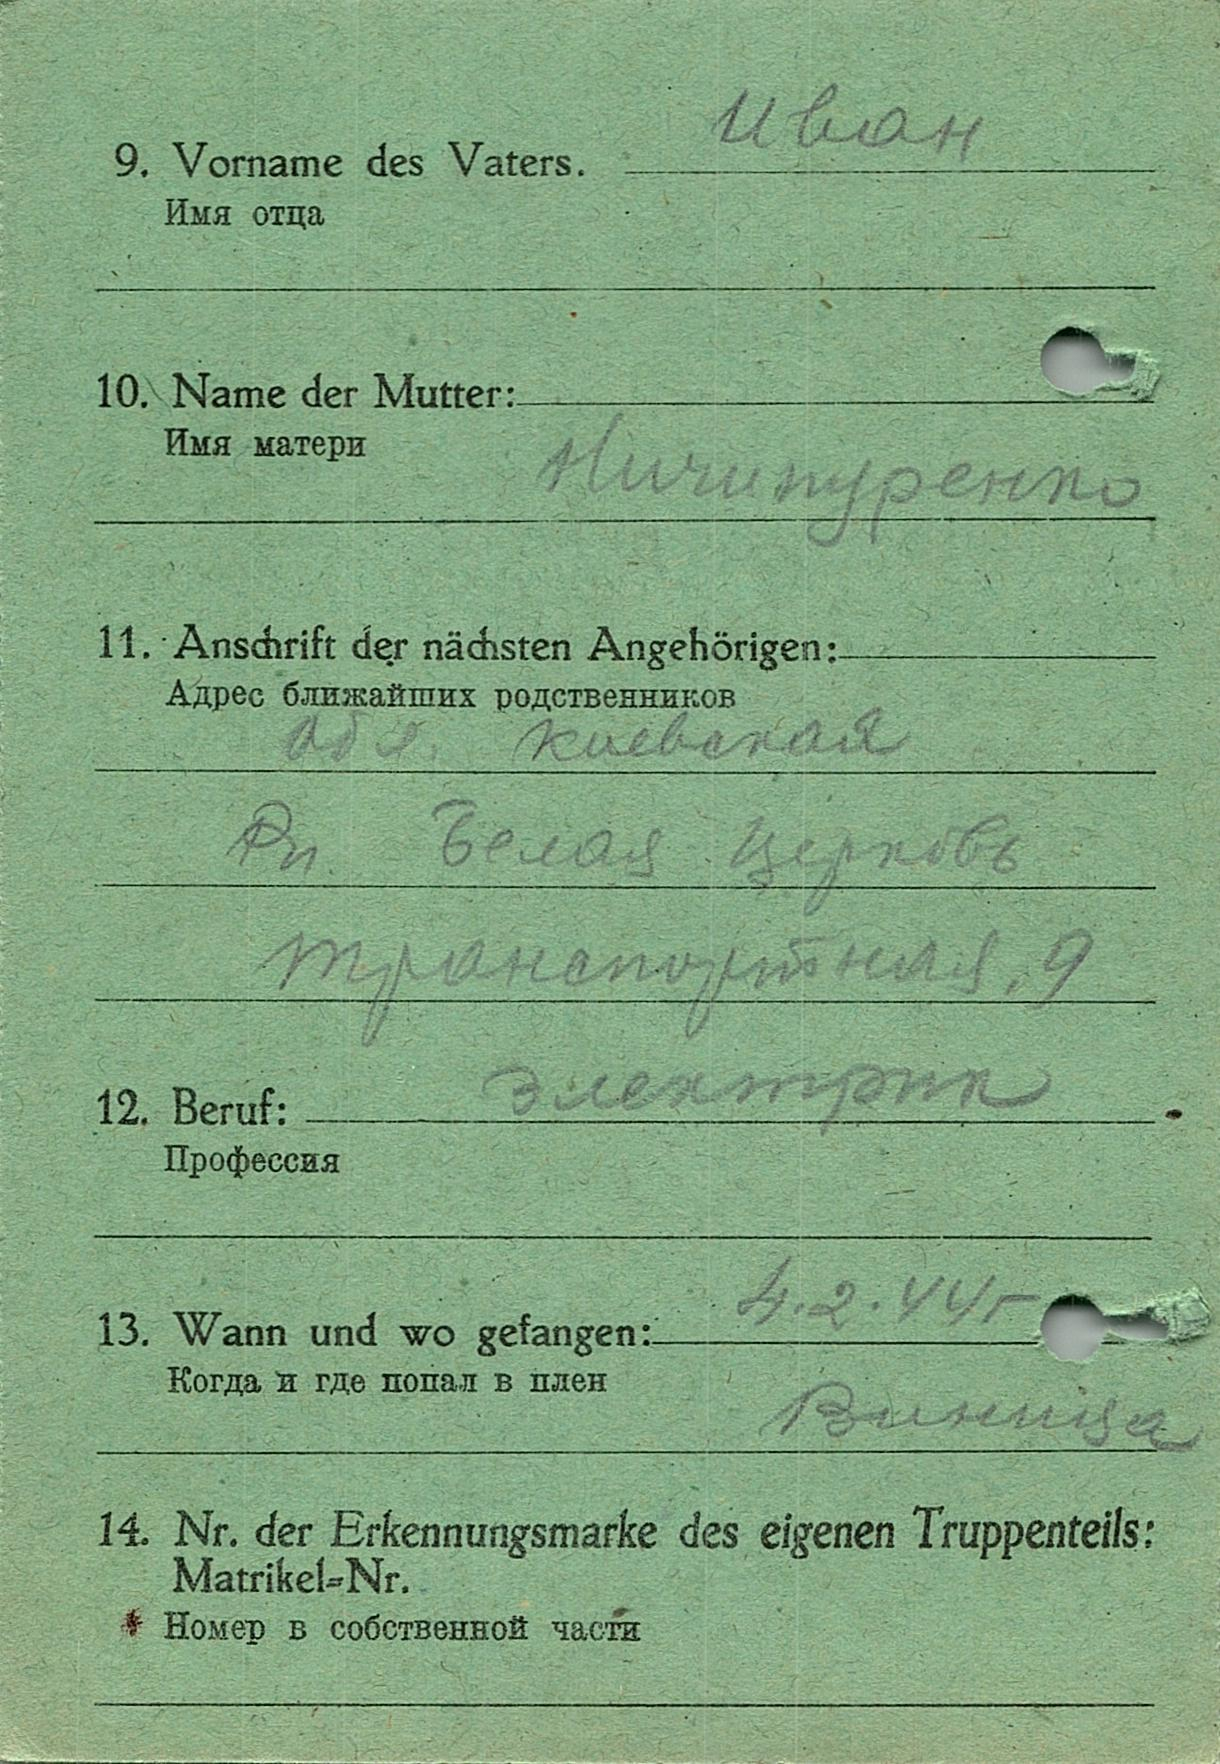 Иван
9. Vorname des Vaters.
Имя отца
10. Name der Mutter:
Имя матери
Ничипуренко
11. Anschrift der nächsten Angehörigen:
Адрес ближайших родственников
обл. киевская
Рн. Белая Церковь
транспортная, 9
12. Beruf: электрик
Профессия
4.2.44г
13. Wann und wo gefangen:
Когда и где попал в плен
Виница
14. Nr. der Erkennungsmarke des eigenen Truppenteils:
Matrikel-Nr.
Номер в собственной части